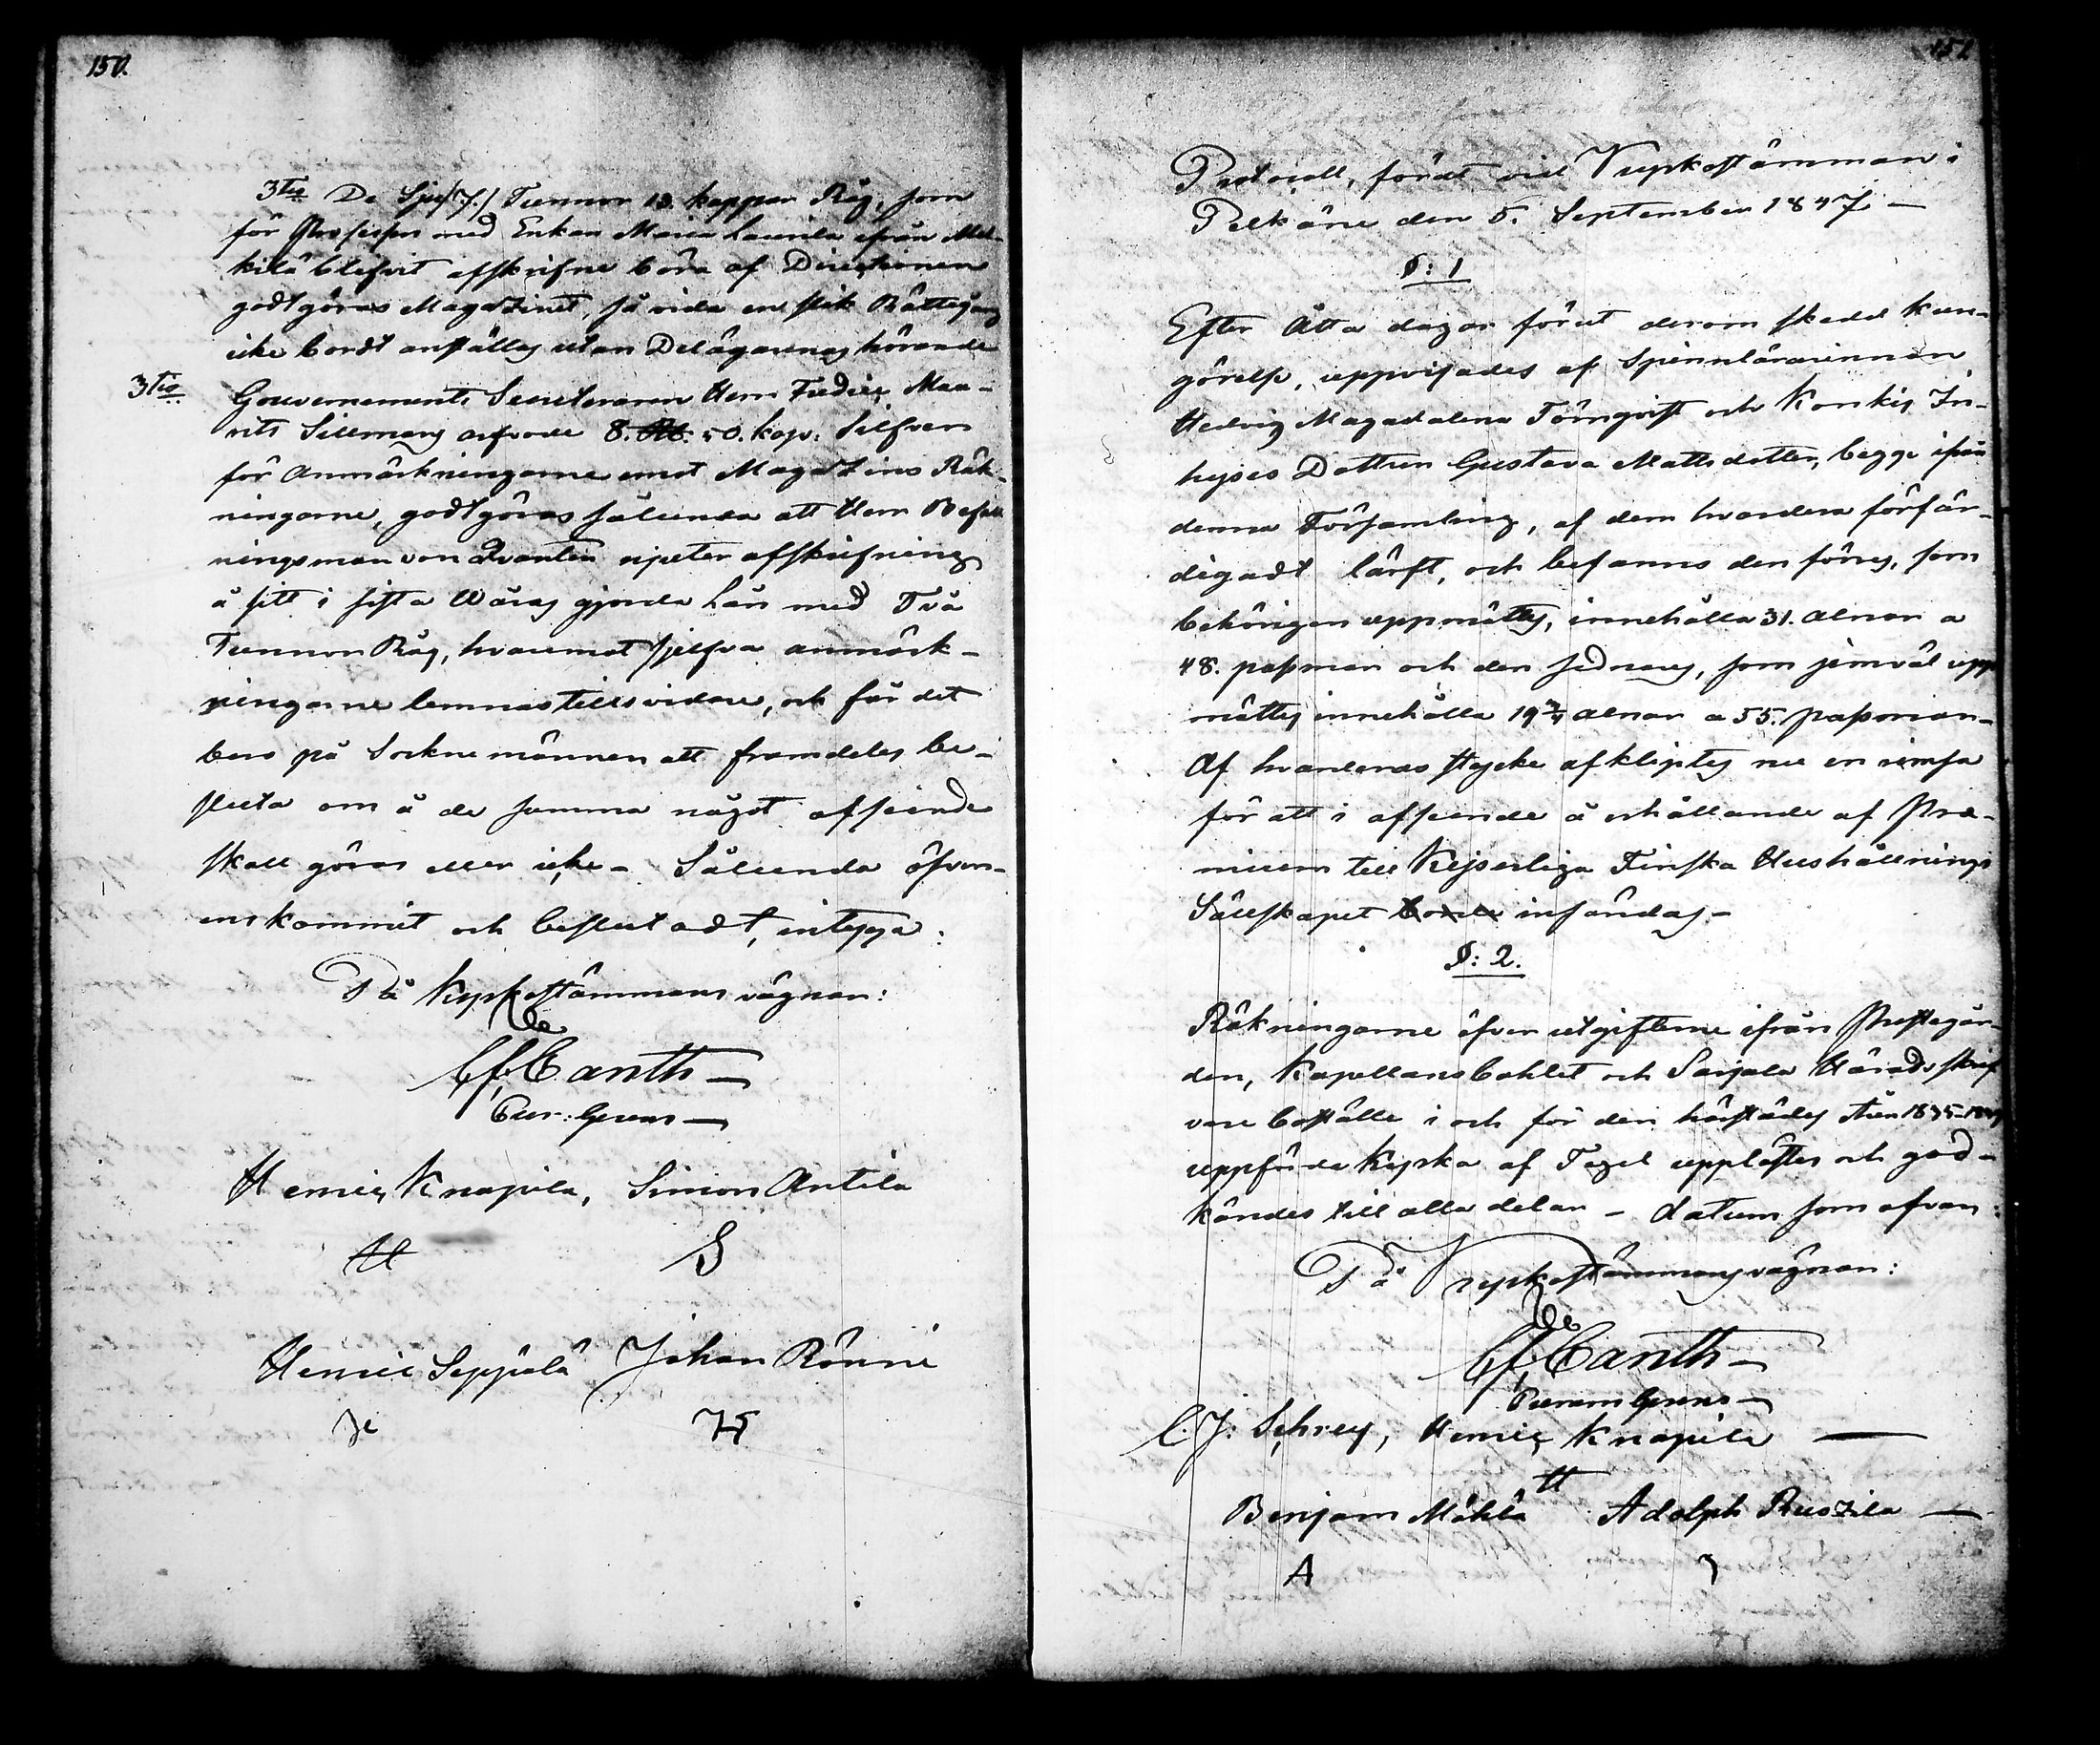 150.
3tio De Sju /7./ Tunnor 10. kappar Råg, som
för Processen med Enkan Maria Laurila ifrån Mel-
kilä blefvit afskrifne böra af Directionen
godtgöras Magazinet, så vida en slik Rättegång
icke bordt anställas utan Delägarnes hörande
3tio Gouvernements Secreteraren Herr Fredric Mau-
rits Sillmans arfvode 8. Rb. 50. kop: Silfver
för Anmärkningarne emot Magazins Räk-
ningarne, godtgöres sålunda att Herr Befall
ningsman von Qvanten njuter afskrifning
å sitt i sista Wåras gjorda Lån med Två
Tunnor Råg, hvaremot sjelfva anmärk-
ningarne lemnas tillsvidare, och får det
bero på Sockne männen att framdeles be-
sluta om å de samma något afseende
skall göras eller icke - Sålunda öfver-
enskommit och beslutadt, intyga:
På Kyrkostämmans vägnar:
C. J. Canth
Past: Grens
Henric Knapila, Simon Antila
H S
Henric Seppälä Johan Rönni
151
Protocoll, fördt vid Kyrkostämman i
Pelkäne den 5. September 1847 -
§: 1
Efter Åtta dagar förut derom skedd kun-
görelse, uppvisades af Spinnlärarinnan
Hedvig Magadalena Törnqvist och Konkis In-
hyses Dottren Gustava Mattsdotter, begge ifrån
denna Församling, af dem hvardera förfär-
digadt lärft, och befanns den förres, som
behörigen uppmättes, innehålla 31. alnar a
48. pasman och den sednares, som jemväl upp
mättes innehålla 19 3/4 alnar a 55. pasman-
Af hvarderas stycke afkliptes nu en rimsa
för att i afseende å erhållande af Præ-
mium till Kejserliga Finska Hushållnings
Sällskapet borde insändas -
§: 2.
Räkningarne öfver utgifterne ifrån Prestegår-
den, Kapellansbohlet och Sarjala Häradsskrif
vare boställe i och för den härstädes åren 1835-18
uppförde Kyrka af Tegel upplästes och god-
kändes till alla delar - datum som ofvan:
På Kyrkostämmans vägnar:
C. J. Canth
C. J. Schrey, Henric Knapila
H
Benjam Mähkä Adolph Ruszila
A